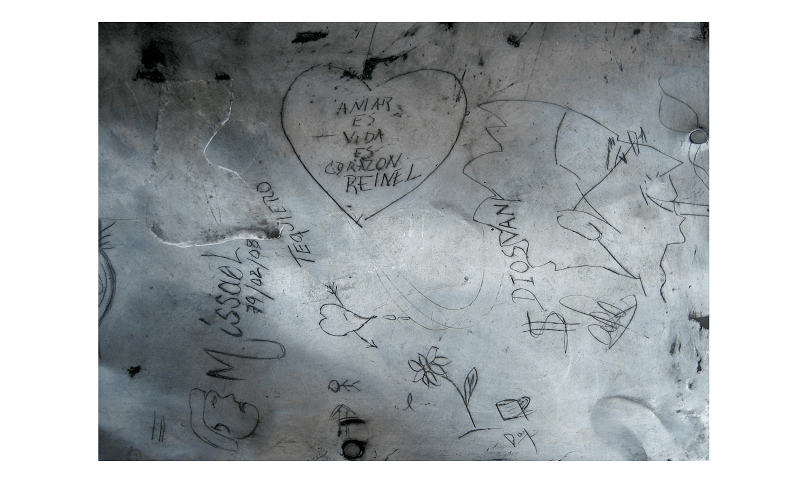 AMAR
ES
VIDA
ES
CORAZON
REINEL
TEQUIERO
Missael
79/02/08
DIOSVANI
$